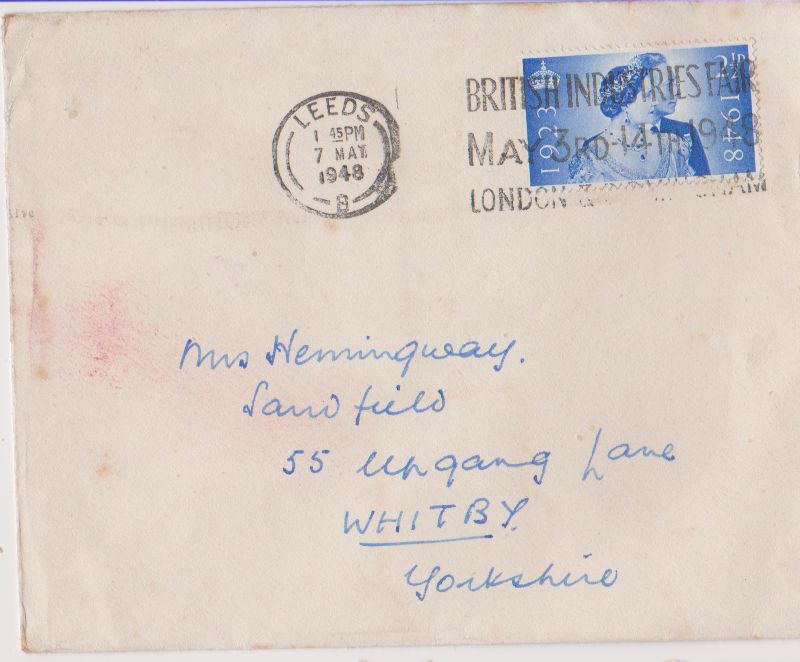 LEEDS
1 45PM
7 MAY
1948
8
BRITISH INDUSTRIES FAIR
MAY 3RD-14TH 1948
LONDON &
1923
2½D
1948
Mrs Hemingway.
Sandfield
55 Upgang Lane
WHITBY.
Yorkshire